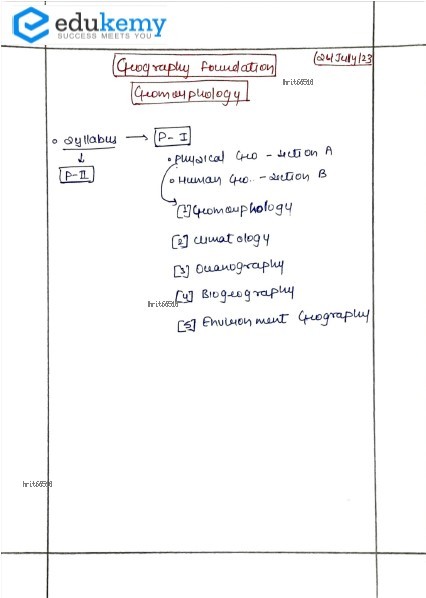 edukemy
SUCCESS MEETS YOU
Geography Foundation
(24/July/23
hrit66518
Geomorphology
• Syllabus → P-I
↓
P-II
• Physical Geo - Section A
• Human Geo.. - Section B
[1] Geomorphology
[2] Climatology
[3] Oceanography
[4] Biogeography
hrit66518
[5] Environment Geography
hrit66518